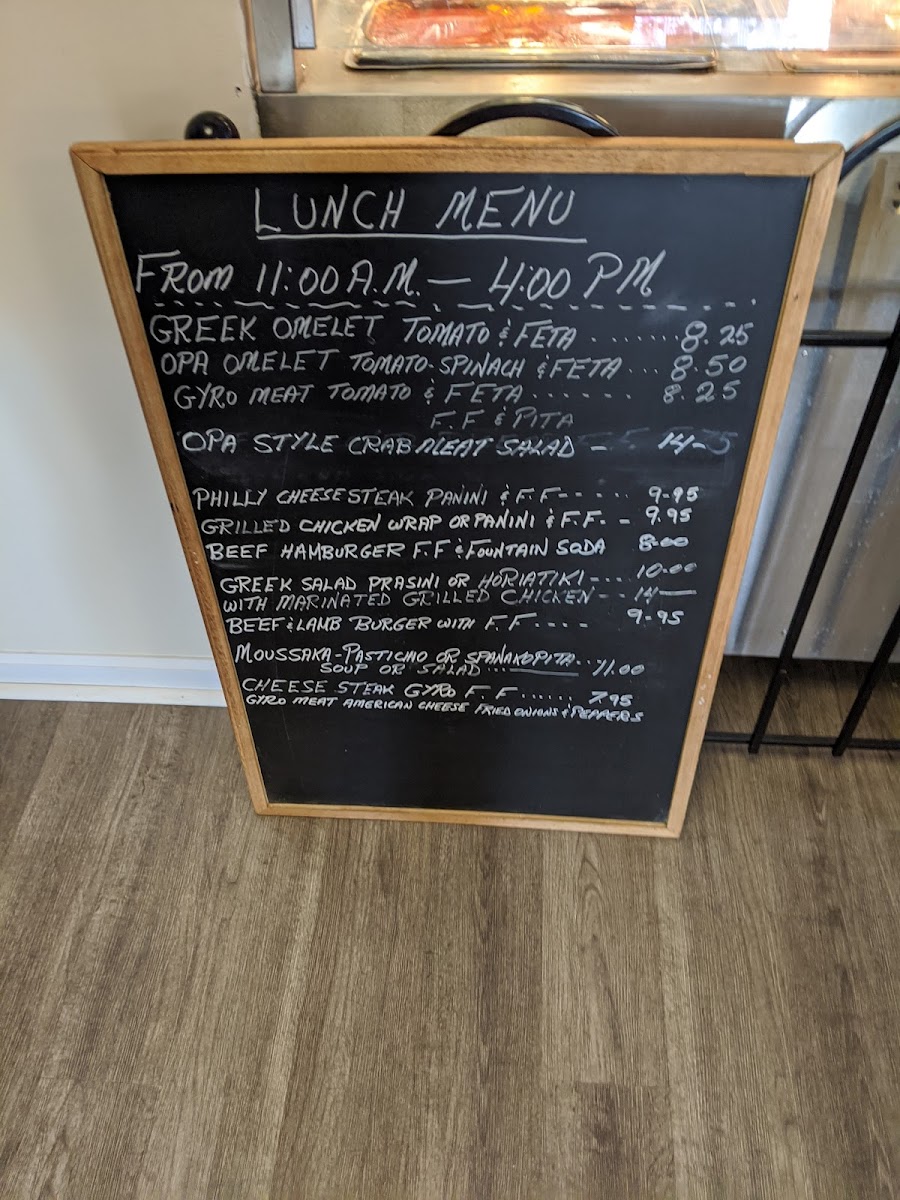 LUNCH MENU
FROM 11:00 A.M. — 4:00 PM
GREEK OMELET TOMATO & FETA ....... 8.25
OPA OMELET TOMATO-SPINACH & FETA ... 8.50
GYRO MEAT TOMATO & FETA ...... 8.25
F.F & PITA
OPA STYLE CRABMEAT SALAD - 14-
PHILLY CHEESESTEAK PANINI & F.F----- 9-95
GRILLED CHICKEN WRAP OR PANINI & F.F. -- 9.95
BEEF HAMBURGER F.F & FOUNTAIN SODA 8-00
GREEK SALAD PRASINI OR HORIATIKI--- 10-00
WITH MARINATED GRILLED CHICKEN -- 14—
BEEF & LAMB BURGER WITH F.F---- 9-95
MOUSSAKA-PASTICHO OR SPANAKOPITA...
SOUP OR SALAD ... 11.00
CHEESE STEAK GYRO F.F...... 7.95
GYRO MEAT AMERICAN CHEESE FRIED ONIONS & PEPPERS